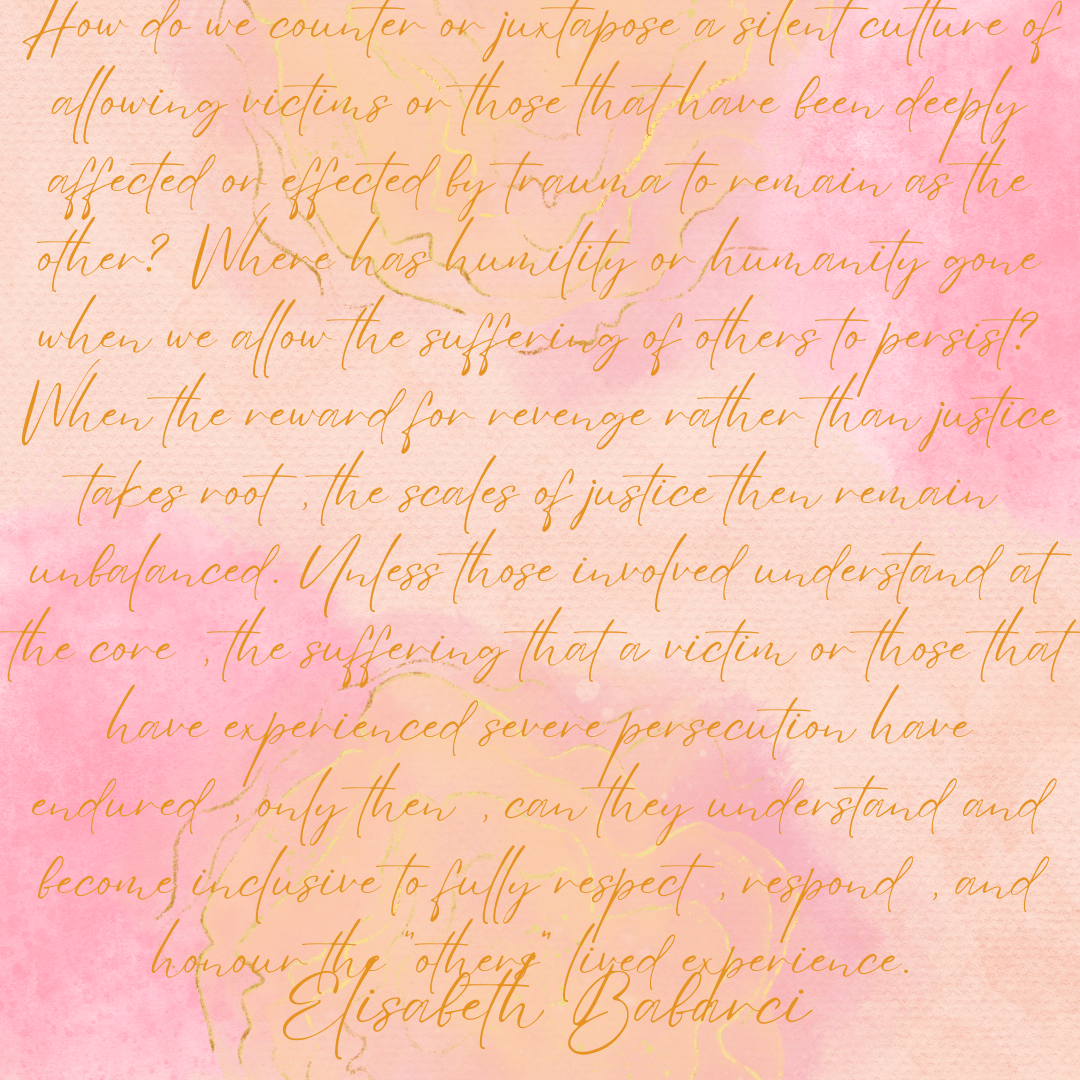 How do we counter or juxtapose a silent culture of
allowing victims or those that have been deeply
affected or effected by trauma to remain as the
other? Where has humility or humanity gone
when we allow the suffering of others to persist?
When the reward for revenge rather than justice
takes root , the scales of justice then remain
unbalanced. Unless those involved understand at
the core , the suffering that a victim or those that
have experienced severe persecution have
endured , only then , can they understand and
become inclusive to fully respect , respond , and
honour the "others" lived experience.
Elisabeth Babarci